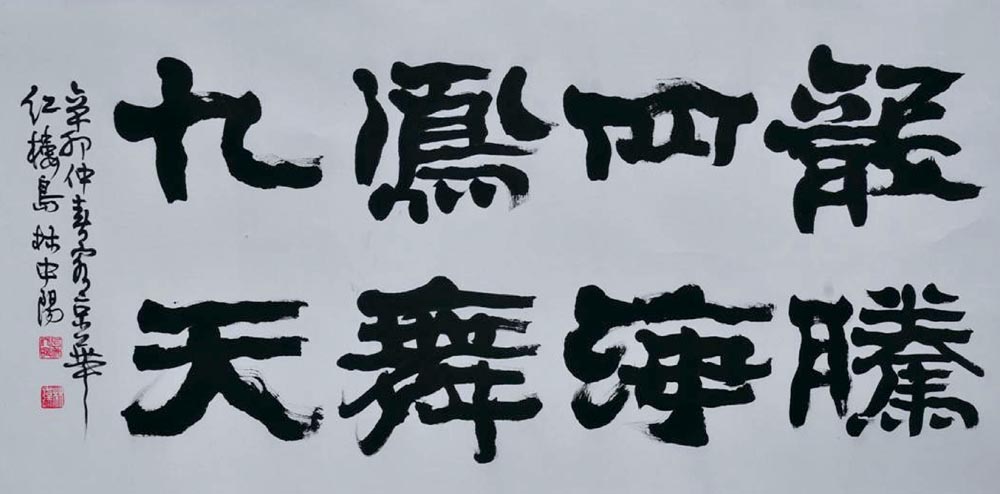 龍騰
四海
鳳舞
九天
辛卯仲春客京華
红楼島 林中陽